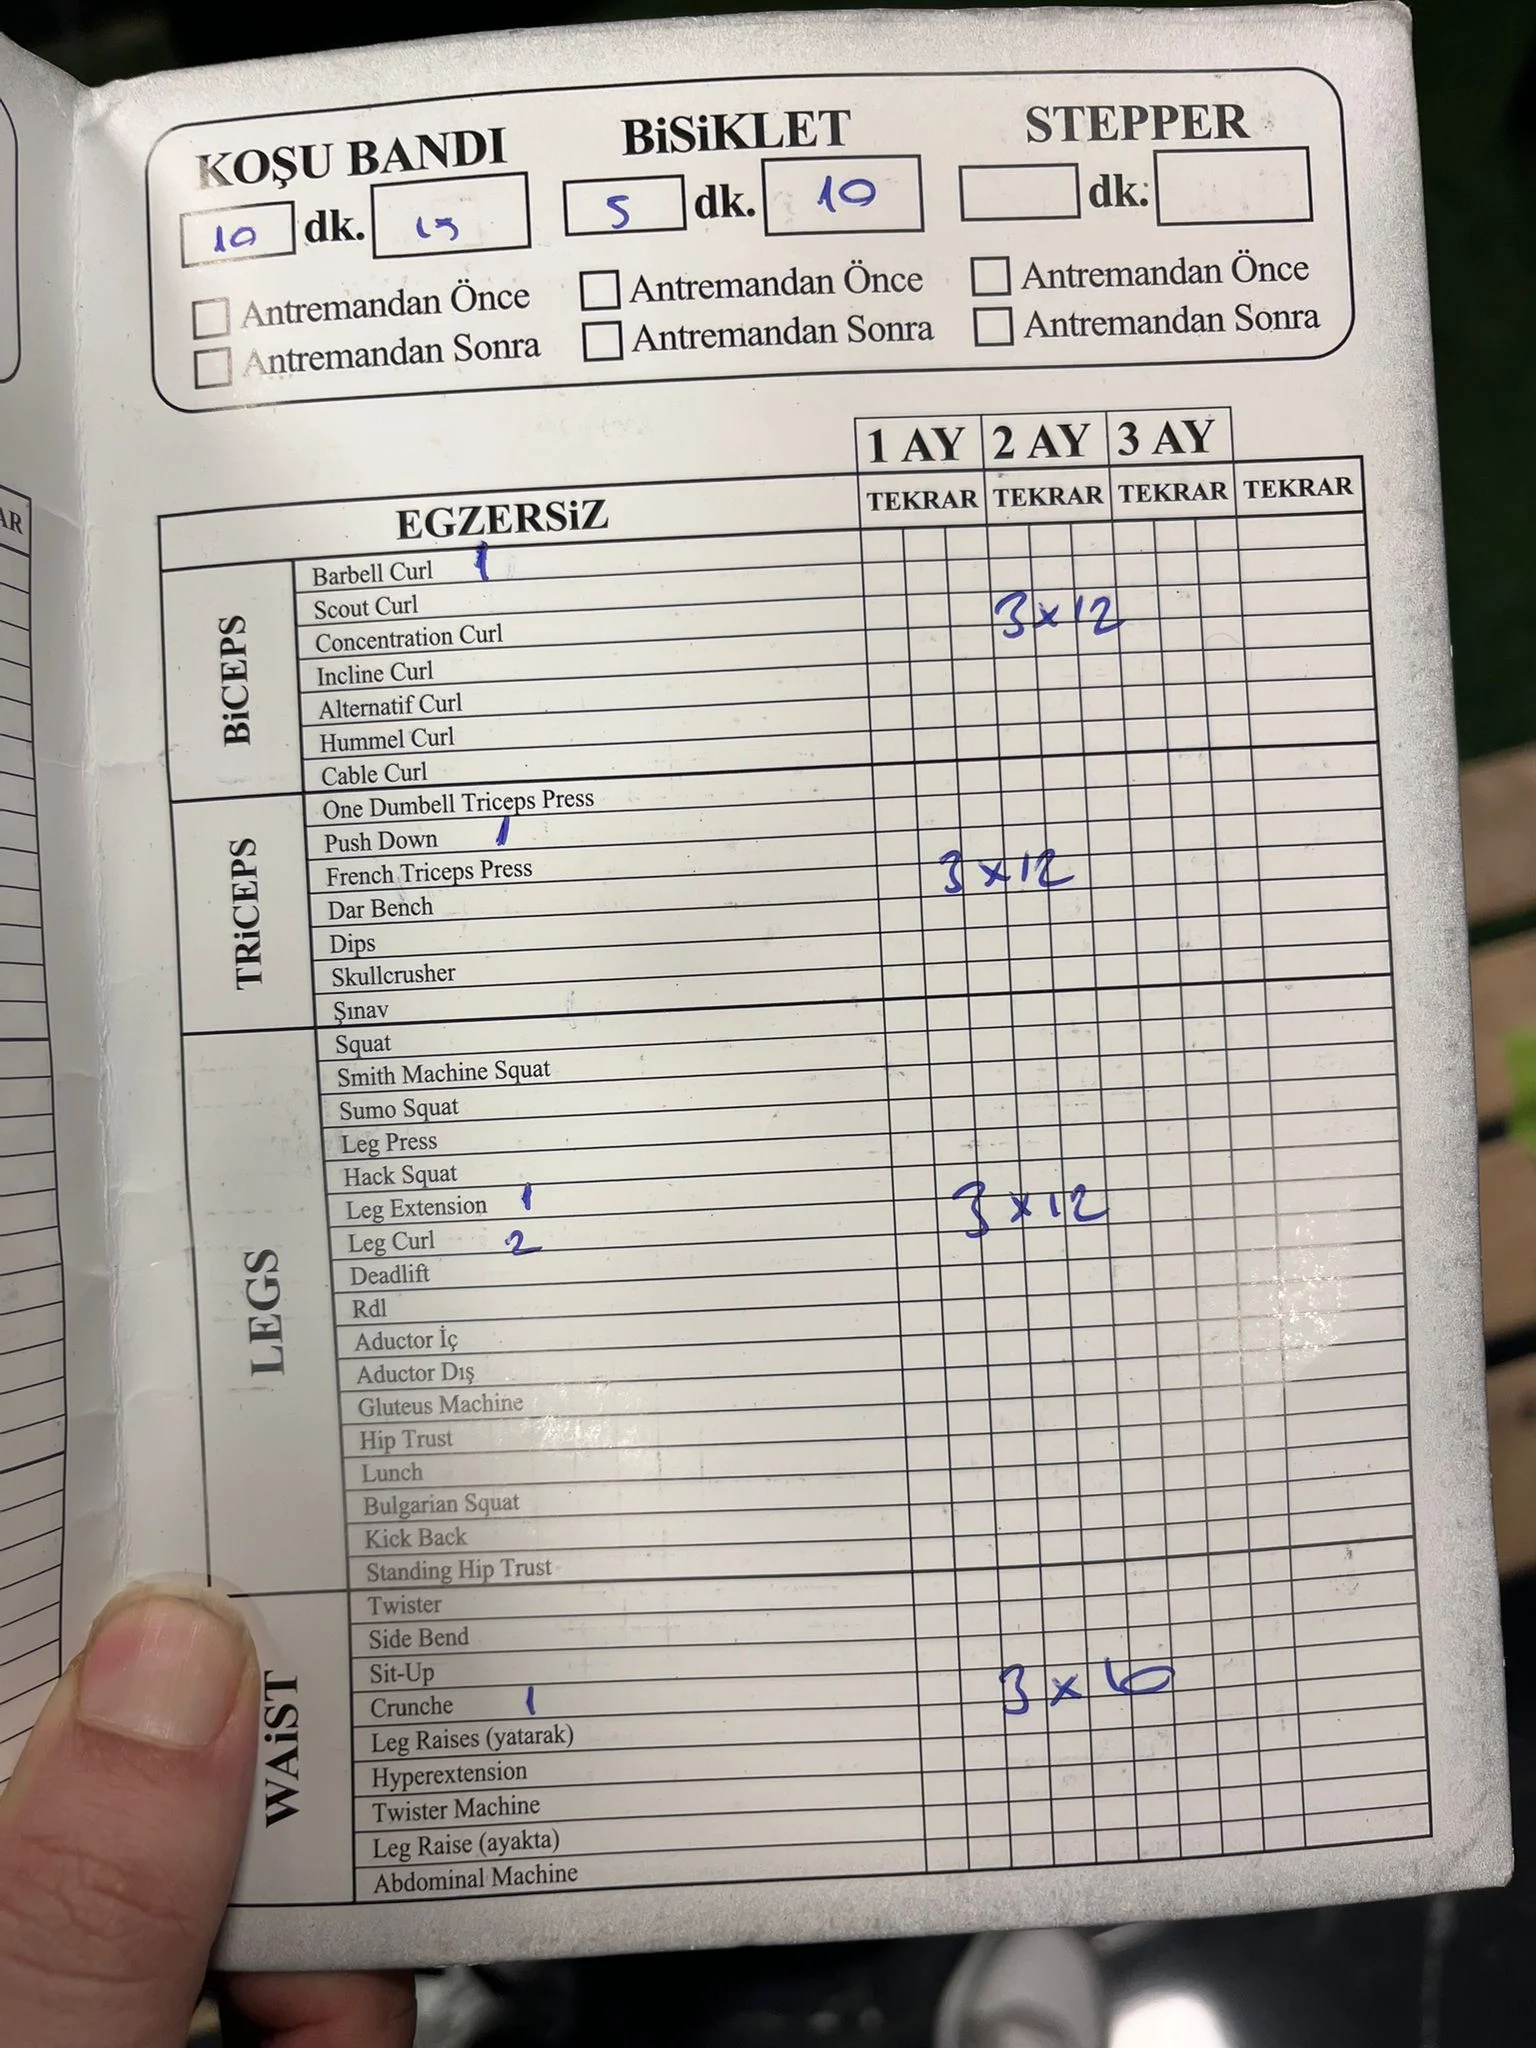 KOŞU BANDI BiSiKLET STEPPER
10 dk. 15 5 dk. 10 dk.
Antremandan Önce Antremandan Önce Antremandan Önce
Antremandan Sonra Antremandan Sonra Antremandan Sonra
1 AY 2 AY 3 AY
AR EGZERSiZ TEKRAR TEKRAR TEKRAR TEKRAR
BiCEPS
Barbell Curl 1
Scout Curl 3 x 12
Concentration Curl
Incline Curl
Alternatif Curl
Hummel Curl
Cable Curl
TRiCEPS
One Dumbell Triceps Press
Push Down 1
French Triceps Press 3 x 12
Dar Bench
Dips
Skullcrusher
Şınav
LEGS
Squat
Smith Machine Squat
Sumo Squat
Leg Press
Hack Squat
Leg Extension 1 3 x 12
Leg Curl 2
Deadlift
Rdl
Aductor İç
Aductor Dış
Gluteus Machine
Hip Trust
Lunch
Bulgarian Squat
Kick Back
Standing Hip Trust
WAiST
Twister
Side Bend
Sit-Up
Crunche 1 3 x
Leg Raises (yatarak)
Hyperextension
Twister Machine
Leg Raise (ayakta)
Abdominal Machine